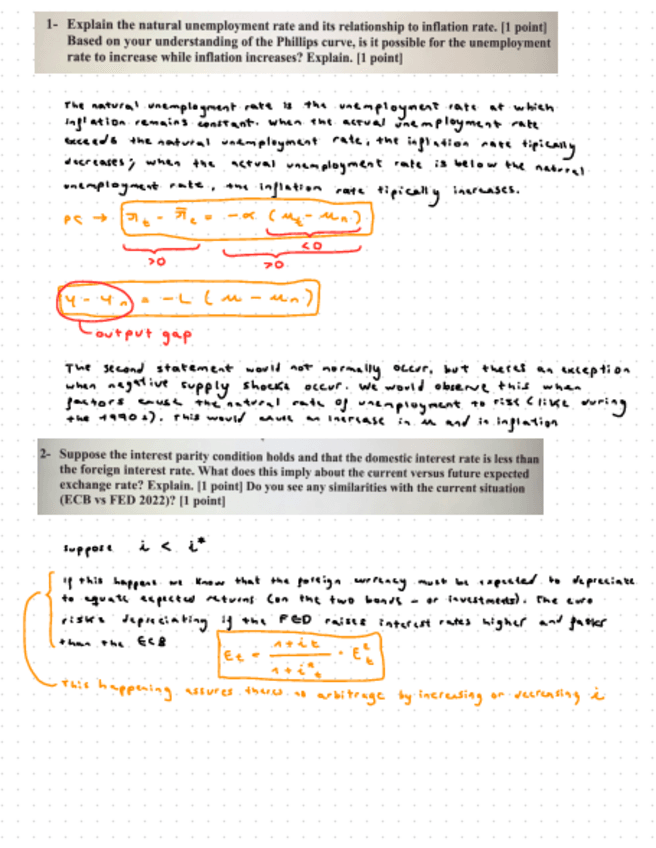 1- Explain the natural unemployment rate and its relationship to inflation rate. [1 point]
Based on your understanding of the Phillips curve, is it possible for the unemployment
rate to increase while inflation increases? Explain. [1 point]
The natural unemployment rate is the unemployment rate at which
inflation remains constant. when the actual unemployment rate
exceeds the natural unemployment rate, the inflation rate tipically
decreases; when the actual unemployment rate is below the natural
unemployment rate, the inflation rate tipically increases.
PC → πt - π̄t = -α (ut - un)
<0
>0 >0
Y - Yn = -L (u - un)
output gap
The second statement would not normally occur, but theres an exception
when negative supply shocks occur. We would observe this when
factors cause the natural rate of unemployment to rise (like during
the 1990s). This would cause an increase in u and in inflation
2- Suppose the interest parity condition holds and that the domestic interest rate is less than
the foreign interest rate. What does this imply about the current versus future expected
exchange rate? Explain. [1 point] Do you see any similarities with the current situation
(ECB vs FED 2022)? [1 point]
suppose i < i*
if this happens we know that the foreign currency must be expected to depreciate
to equate expected returns (on the two bonds - or investments). The euro
risks depreciating if the FED raises interest rates higher and faster
than the ECB
Et = 1+it / 1+i*t · Eet
This happening assures theres no arbitrage by increasing or decreasing i